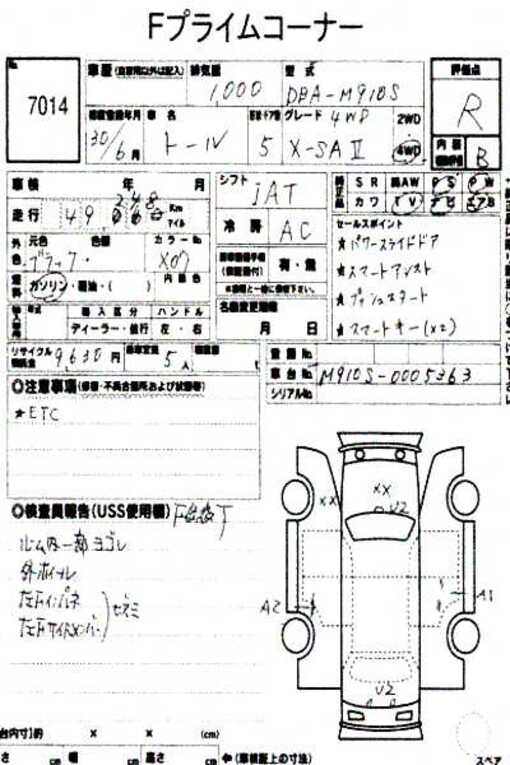 Fプライムコーナー
No.
7014
車歴 (自家用以外は記入)
排気量
1,000
型式
DBA-M910S
評価点
R
初度登録年月
30/6月
車名
トール
ドア数
5
グレード
4WD
X-SAⅡ
2WD
4WD
内装
B
車検
年
月
走行
49,248
Km
マイル
シフト
IAT
冷房
AC
SR
AW
PS
PW
カワ
TV
ナビ
エアB
セールスポイント
★パワースライドドア
★スマートアシスト
★プッシュスタート
★スマートキー(x2)
外色
元色
色替
カラーNo
ブラック・
X07
内装色
燃料
ガソリン・軽油・( )
有・無
名義変更期限
月 日
輸入区分
ハンドル
ディーラー・並行
左・右
リサイクル預託金
9,630円
乗車定員
5人
積載量
t
登録No.
車台No.
M910S-0005363
シリアルNo.
◎注意事項(修復・不具合箇所および状態等)
★ETC
◎検査員報告(USS使用欄)
下回り下
ルーム内一部ヨゴレ
外ホイール
左Fインパネ
左Fサイドメンバー
XX
XX
U2
A2
A1
U2
台内寸)約 × × (cm)
さ cm 幅 cm 高さ cm
←(車検証上の寸法)
スペア